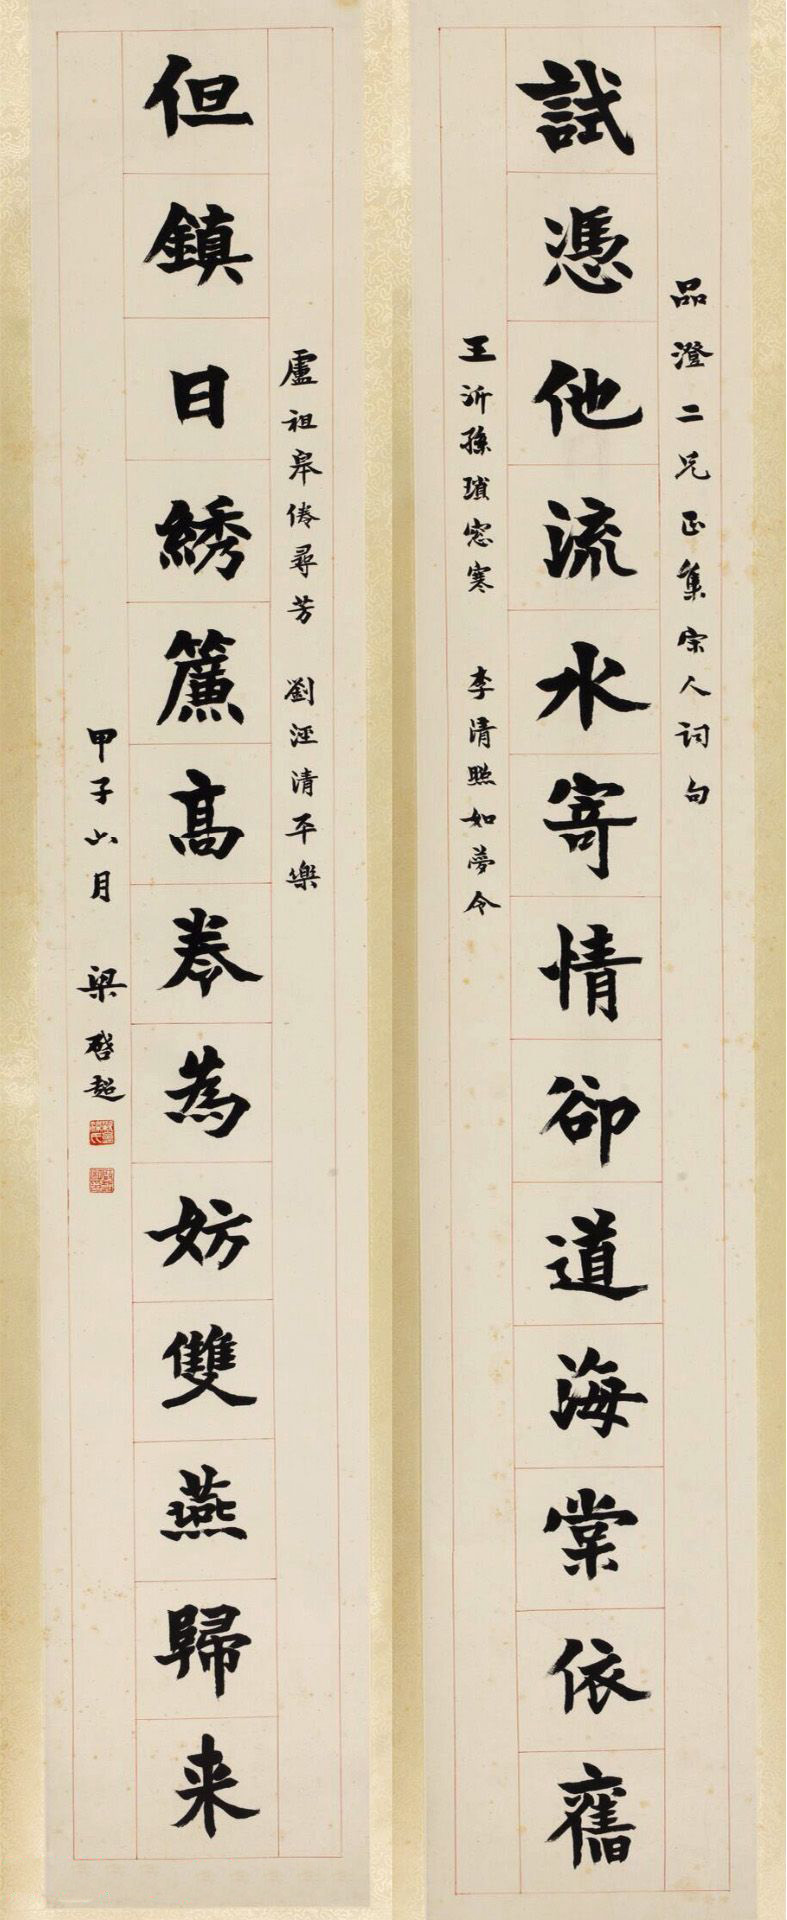 品澄二兄正集宋人詞句
試憑他流水寄情卻道海棠依舊
王沂孫瑣窓寒　李清照如夢令
盧祖皋倦尋芳　劉涇清平樂
但鎮日綉簾高卷為妨雙燕歸来
甲子六月　梁啓超